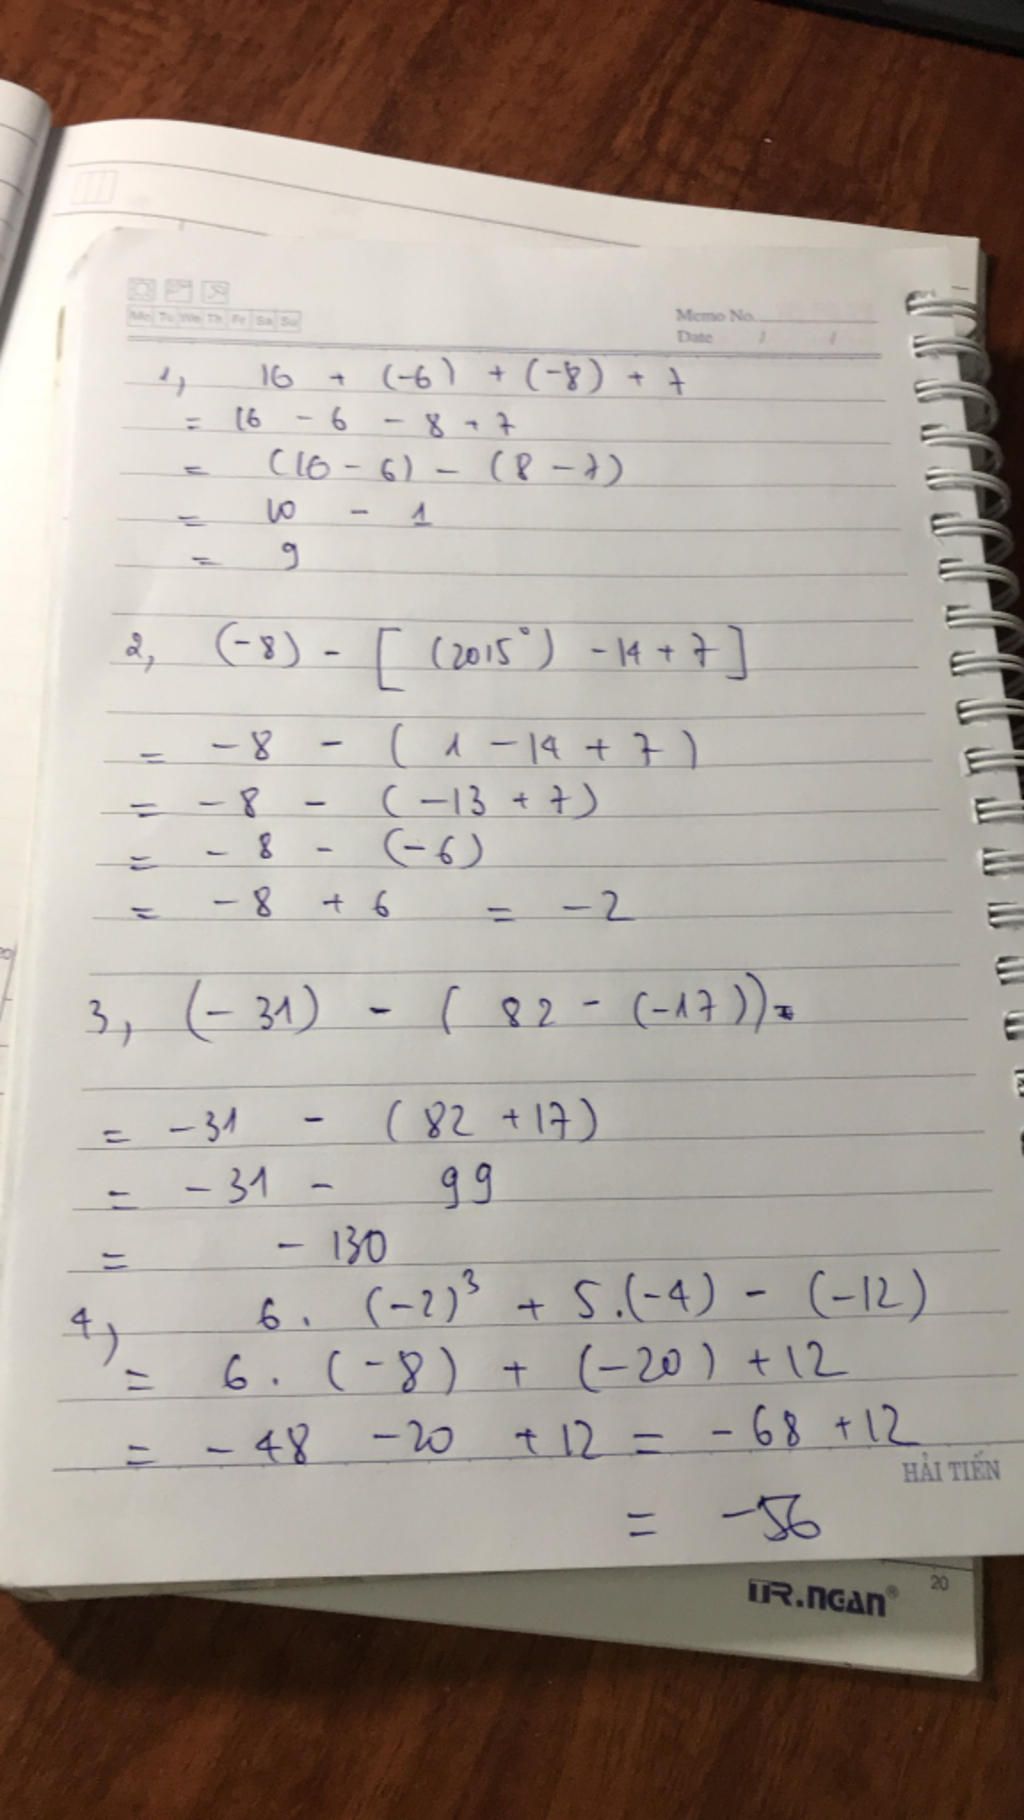 Mo Tu We Th Fr Sa Su
Memo No.
Date / /
1, 16 + (-6) + (-8) + 7
= 16 - 6 - 8 + 7
= (16 - 6) - (8 - 7)
= 10 - 1
= 9
2, (-8) - [ (2015°) - 14 + 7 ]
= -8 - ( 1 - 14 + 7 )
= -8 - ( -13 + 7 )
= -8 - (-6)
= -8 + 6 = -2
3, (-31) - ( 82 - (-17)) =
= -31 - ( 82 + 17)
= -31 - 99
= - 130
4, 6 . (-2)³ + 5.(-4) - (-12)
= 6 . (-8) + (-20) + 12
= -48 -20 + 12 = -68 + 12
HẢI TIẾN
= -56
TR.NGAN®
20